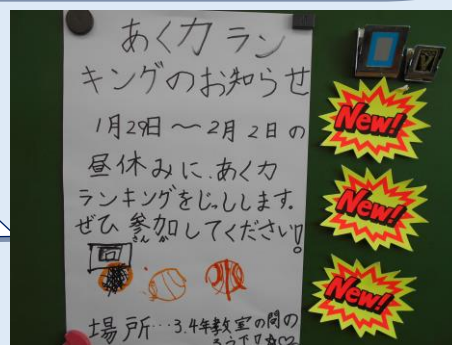 あく力ラン
キングのお知らせ
1月29日〜2月2日の
昼休みに、あく力
ランキングをじっしします。
ぜひ参加してください!
さんか
場所…3.4年教室の間の
New!
New!
New!